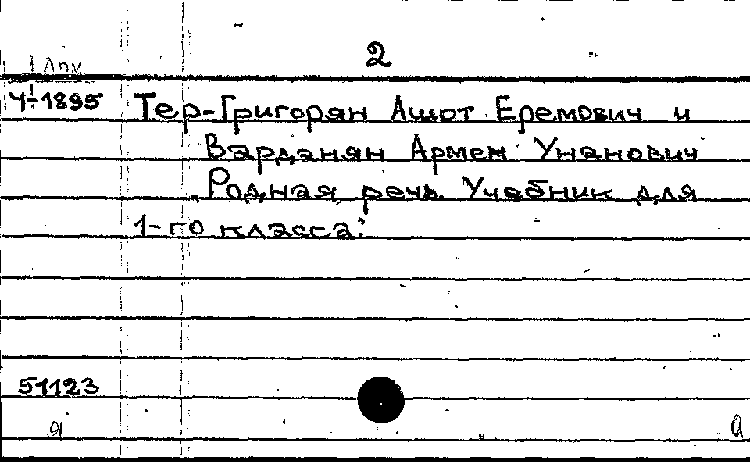 2
Арм
Ч-1895 Тер-Григорян Ашот Еремович и
Варданян Армен Унанович
Родная речь. Учебник для
1-го класса.
51123
я а